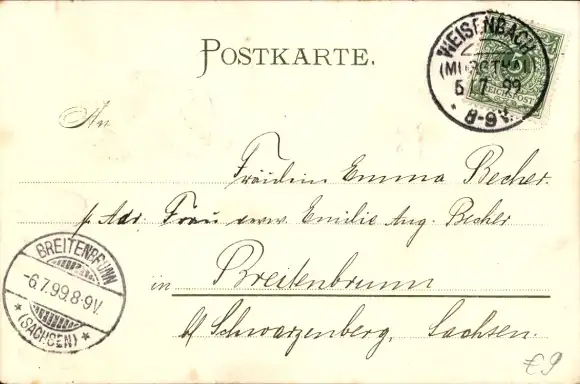 POSTKARTE.
WEISENBACH
(MURGTHAL)
5/7 99
8-9V.
REICHSPOST
An
Fräulein Emma Becher.
p. Adr. Frau verw. Emilie Aug. Becher
in Breitenbrunn
b/ Schwarzenberg, Sachsen.
BREITENBRUNN
-6.7.99.8-9V.
* (SACHSEN) *
€9